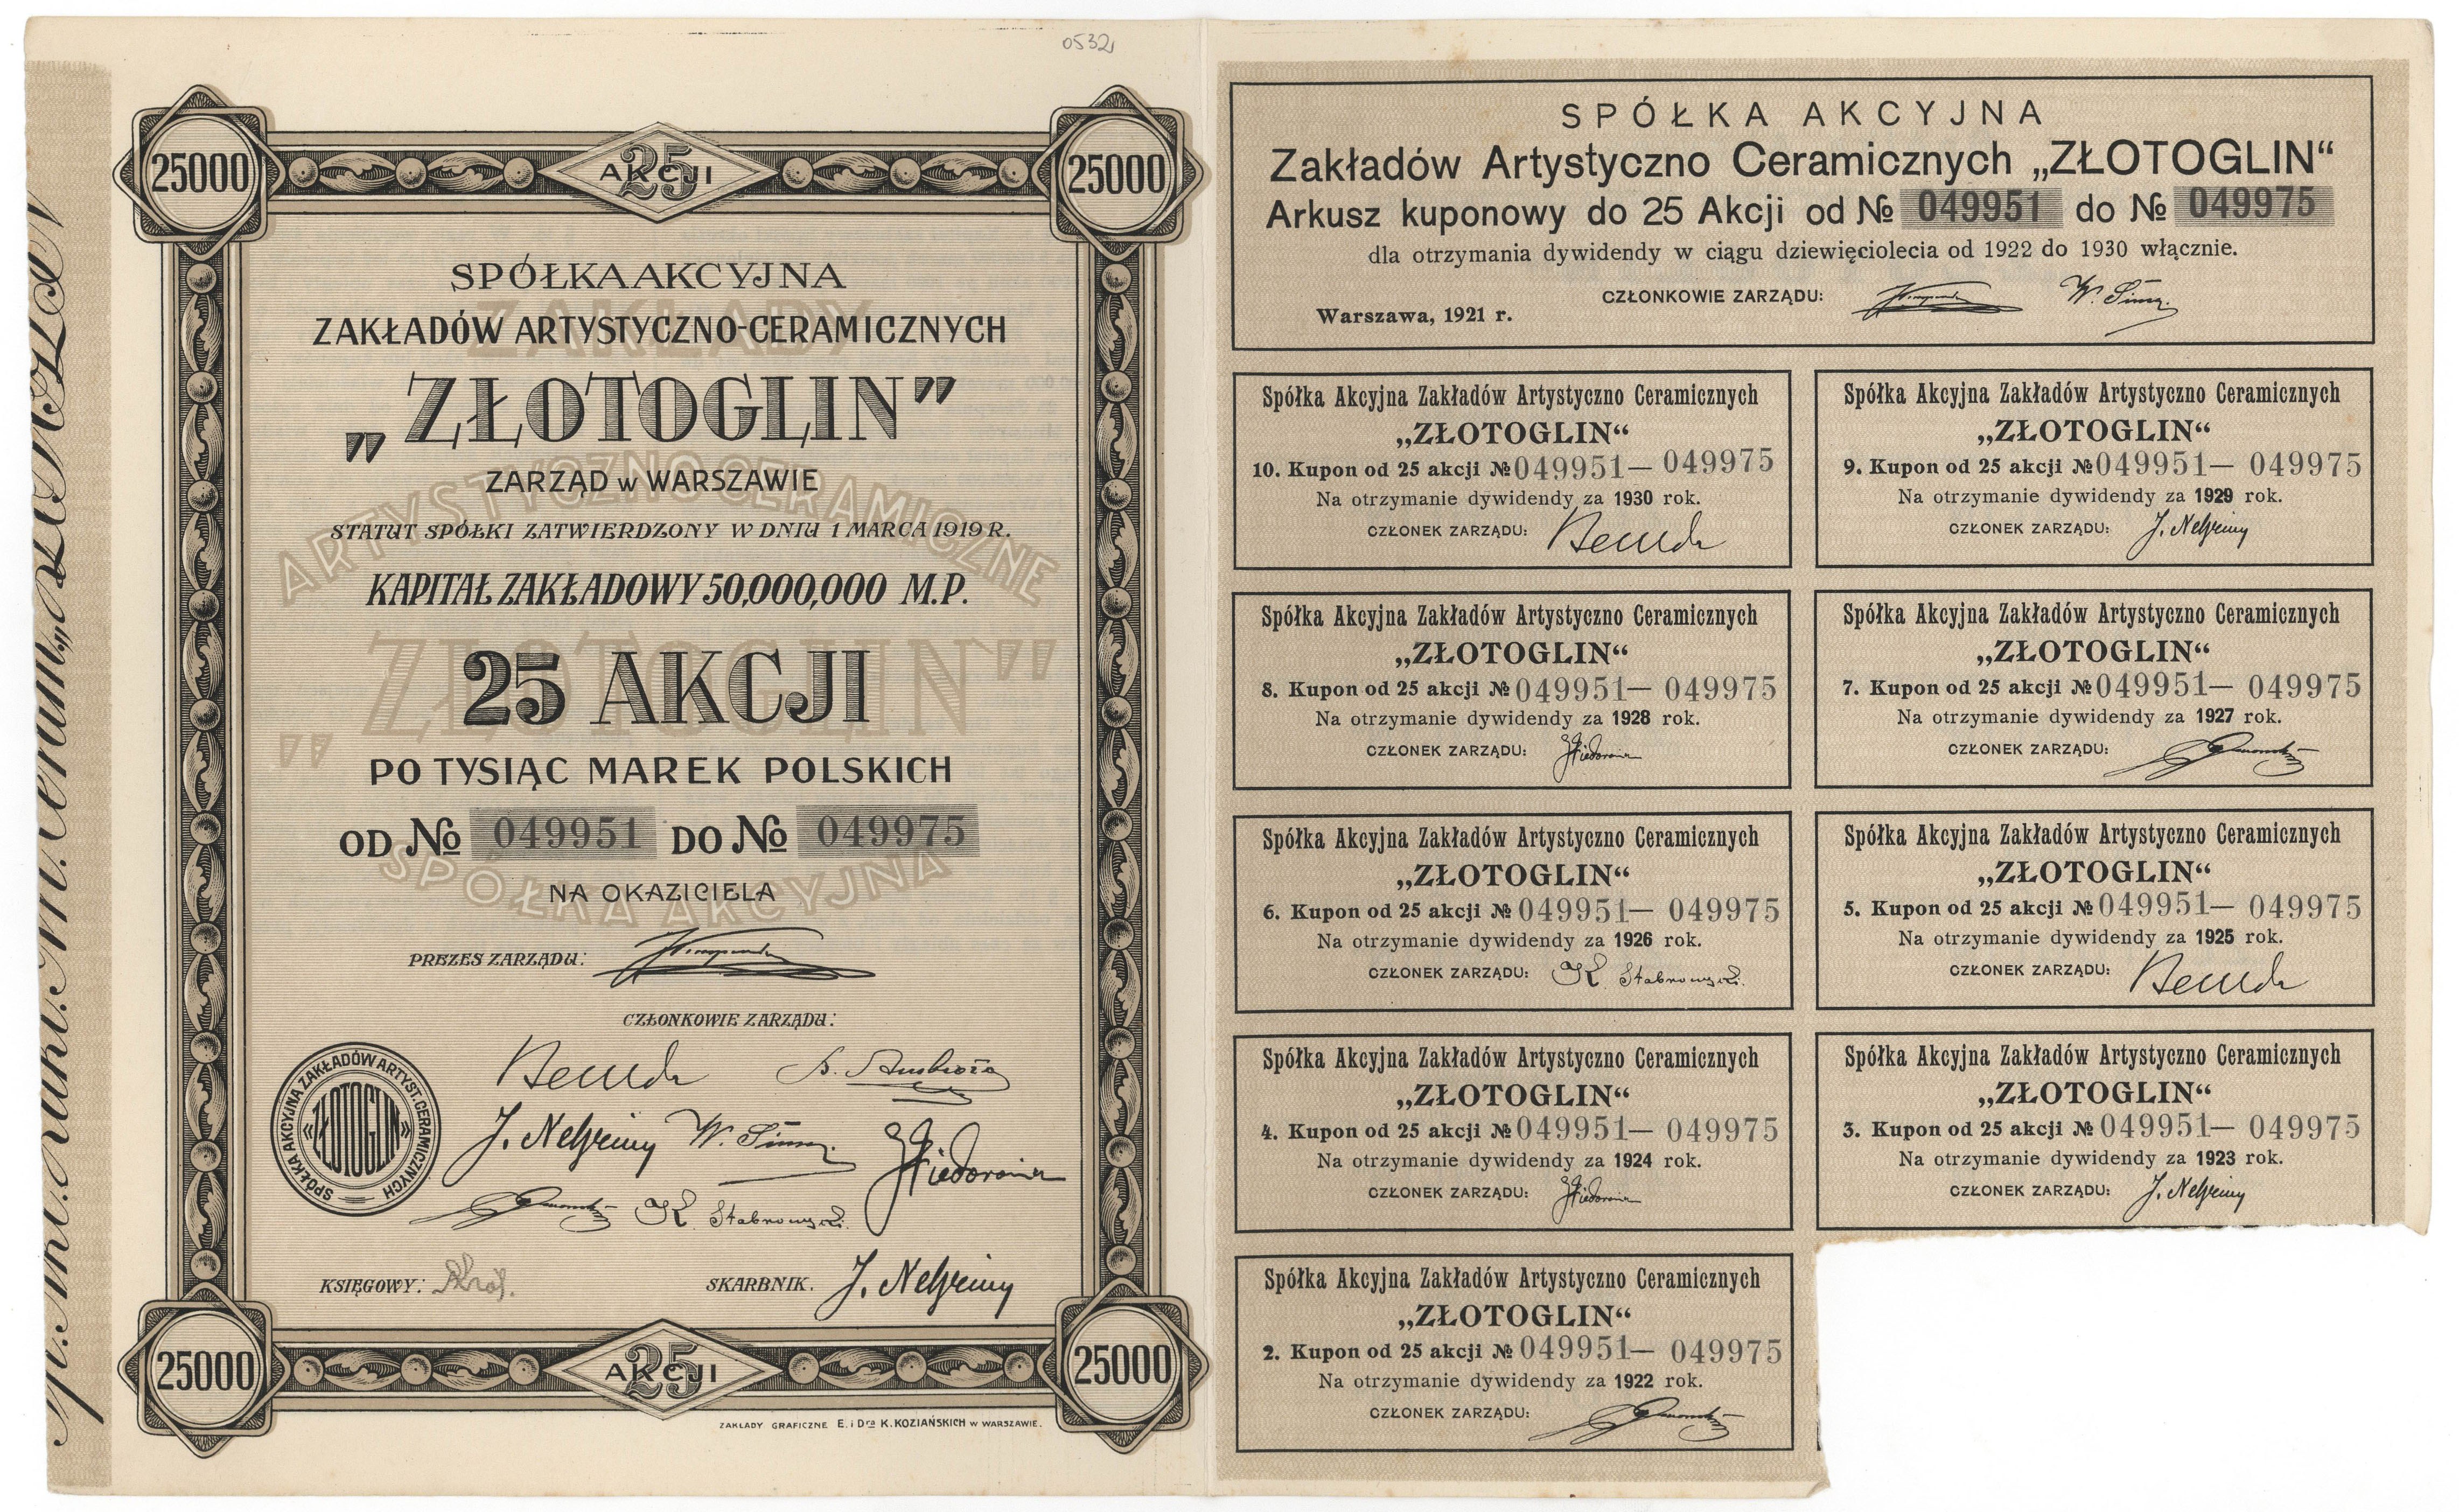 0532
25000
25 AKCJI
25000
SPÓŁKA AKCYJNA
ZAKŁADÓW ARTYSTYCZNO-CERAMICZNYCH
„ZŁOTOGLIN”
ZARZĄD w WARSZAWIE
STATUT SPÓŁKI ZATWIERDZONY W DNIU 1 MARCA 1919 R.
KAPITAŁ ZAKŁADOWY 50,000,000 M.P.
25 AKCJI
PO TYSIĄC MAREK POLSKICH
OD № 049951 DO № 049975
NA OKAZICIELA
ZAKŁADY
ARTYSTYCZNO CERAMICZNE
„ZŁOTOGLIN”
SPÓŁKA AKCYJNA
PREZES ZARZĄDU:
CZŁONKOWIE ZARZĄDU:
SPÓŁKA AKCYJNA ZAKŁADÓW ARTYST. CERAMICZNYCH
«ZŁOTOGLIN»
K. Stabrowski.
KSIĘGOWY:
SKARBNIK.
25000
25 AKCJI
25000
ZAKŁADY GRAFICZNE E. i Dra K. KOZIAŃSKICH w WARSZAWIE.
SPÓŁKA AKCYJNA
Zakładów Artystyczno Ceramicznych „ZŁOTOGLIN“
Arkusz kuponowy do 25 Akcji od № 049951 do № 049975
dla otrzymania dywidendy w ciągu dziewięciolecia od 1922 do 1930 włącznie.
CZŁONKOWIE ZARZĄDU:
Warszawa, 1921 r.
Spółka Akcyjna Zakładów Artystyczno Ceramicznych
„ZŁOTOGLIN“
10. Kupon od 25 akcji № 049951— 049975
Na otrzymanie dywidendy za 1930 rok.
CZŁONEK ZARZĄDU:
Spółka Akcyjna Zakładów Artystyczno Ceramicznych
„ZŁOTOGLIN“
9. Kupon od 25 akcji № 049951— 049975
Na otrzymanie dywidendy za 1929 rok.
CZŁONEK ZARZĄDU:
Spółka Akcyjna Zakładów Artystyczno Ceramicznych
„ZŁOTOGLIN“
8. Kupon od 25 akcji № 049951— 049975
Na otrzymanie dywidendy za 1928 rok.
CZŁONEK ZARZĄDU:
Spółka Akcyjna Zakładów Artystyczno Ceramicznych
„ZŁOTOGLIN“
7. Kupon od 25 akcji № 049951— 049975
Na otrzymanie dywidendy za 1927 rok.
CZŁONEK ZARZĄDU:
Spółka Akcyjna Zakładów Artystyczno Ceramicznych
„ZŁOTOGLIN“
6. Kupon od 25 akcji № 049951— 049975
Na otrzymanie dywidendy za 1926 rok.
CZŁONEK ZARZĄDU: K. Stabrowski.
Spółka Akcyjna Zakładów Artystyczno Ceramicznych
„ZŁOTOGLIN“
5. Kupon od 25 akcji № 049951— 049975
Na otrzymanie dywidendy za 1925 rok.
CZŁONEK ZARZĄDU:
Spółka Akcyjna Zakładów Artystyczno Ceramicznych
„ZŁOTOGLIN“
4. Kupon od 25 akcji № 049951— 049975
Na otrzymanie dywidendy za 1924 rok.
CZŁONEK ZARZĄDU:
Spółka Akcyjna Zakładów Artystyczno Ceramicznych
„ZŁOTOGLIN“
3. Kupon od 25 akcji № 049951— 049975
Na otrzymanie dywidendy za 1923 rok.
CZŁONEK ZARZĄDU:
Spółka Akcyjna Zakładów Artystyczno Ceramicznych
„ZŁOTOGLIN“
2. Kupon od 25 akcji № 049951— 049975
Na otrzymanie dywidendy za 1922 rok.
CZŁONEK ZARZĄDU: